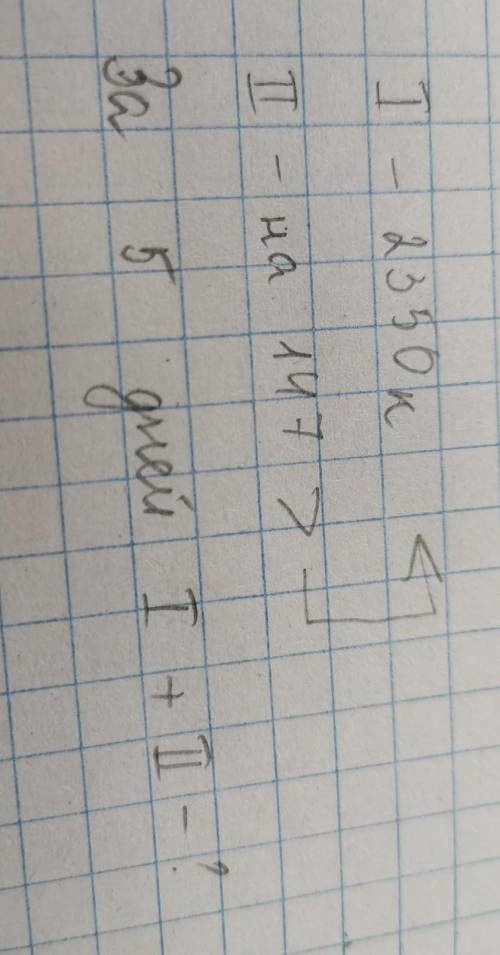 I - 2350 к
II - на 147 >
За 5 дней I + II - ?